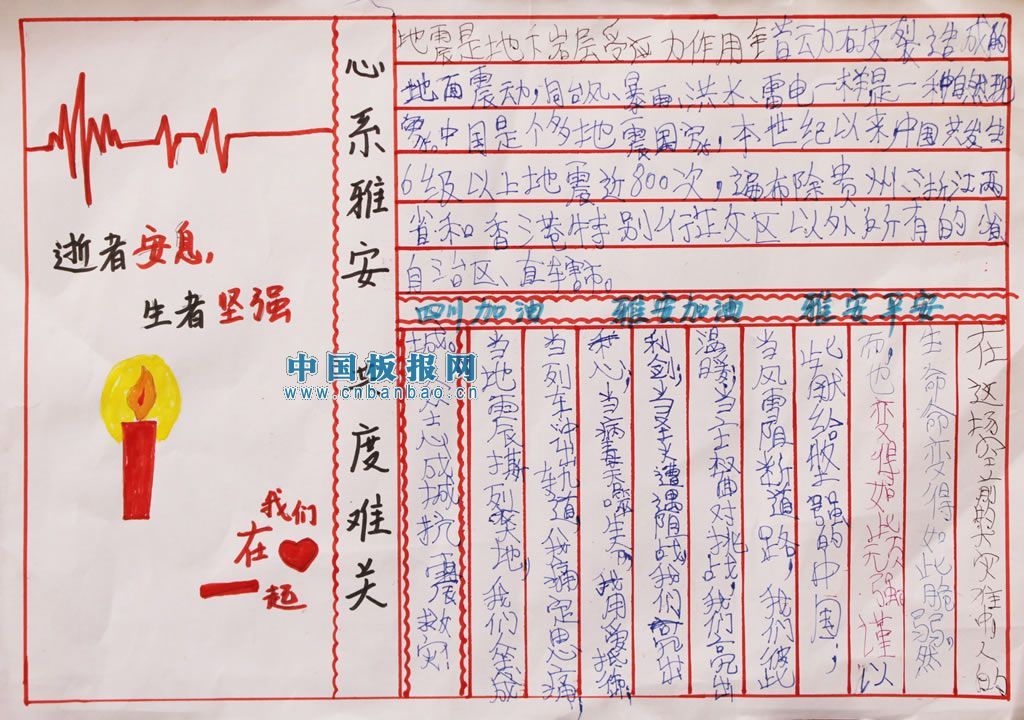 逝者安息,
生者坚强
我们
在
一起
心系雅安 共度难关
地震是地下岩层受应力作用错动破裂造成的
地面震动,同台风、暴雨、洪水、雷电一样是一种自然现
象。中国是个多地震国家,本世纪以来,中国共发生
6级以上地震近800次,遍布除贵州、浙江两
省和香港特别行政区以外所有的省
自治区、直辖市。
四川加油 雅安加油 雅安平安
在这场空前的大灾难中人的
生命变得如此脆弱。然
而,也变得如此顽强谨以
此献给坚强的中国;
当风雪阻断道路,我们彼此
温暖;当主权面对挑战,我们亮出
利剑;当圣火遭遇阻战,我们亮出
心;当病毒我用爱抵御;
当列车冲出轨道,我痛定思痛,
当地震撕裂大地我们坐成
城。众心成城抗震救灾!
中国板报网
www.cnbanbao.cn